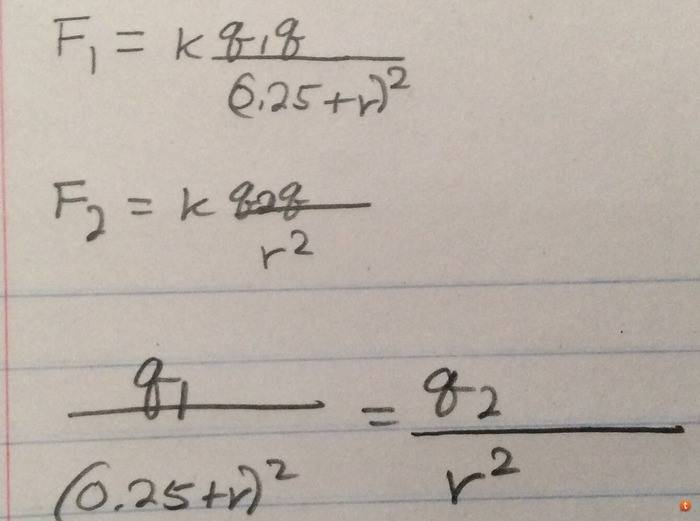 F₁ = k q₁q
(0.25+r)²
F₂ = k q₂q
r²
q₁ = q₂
(0.25+r)² r²